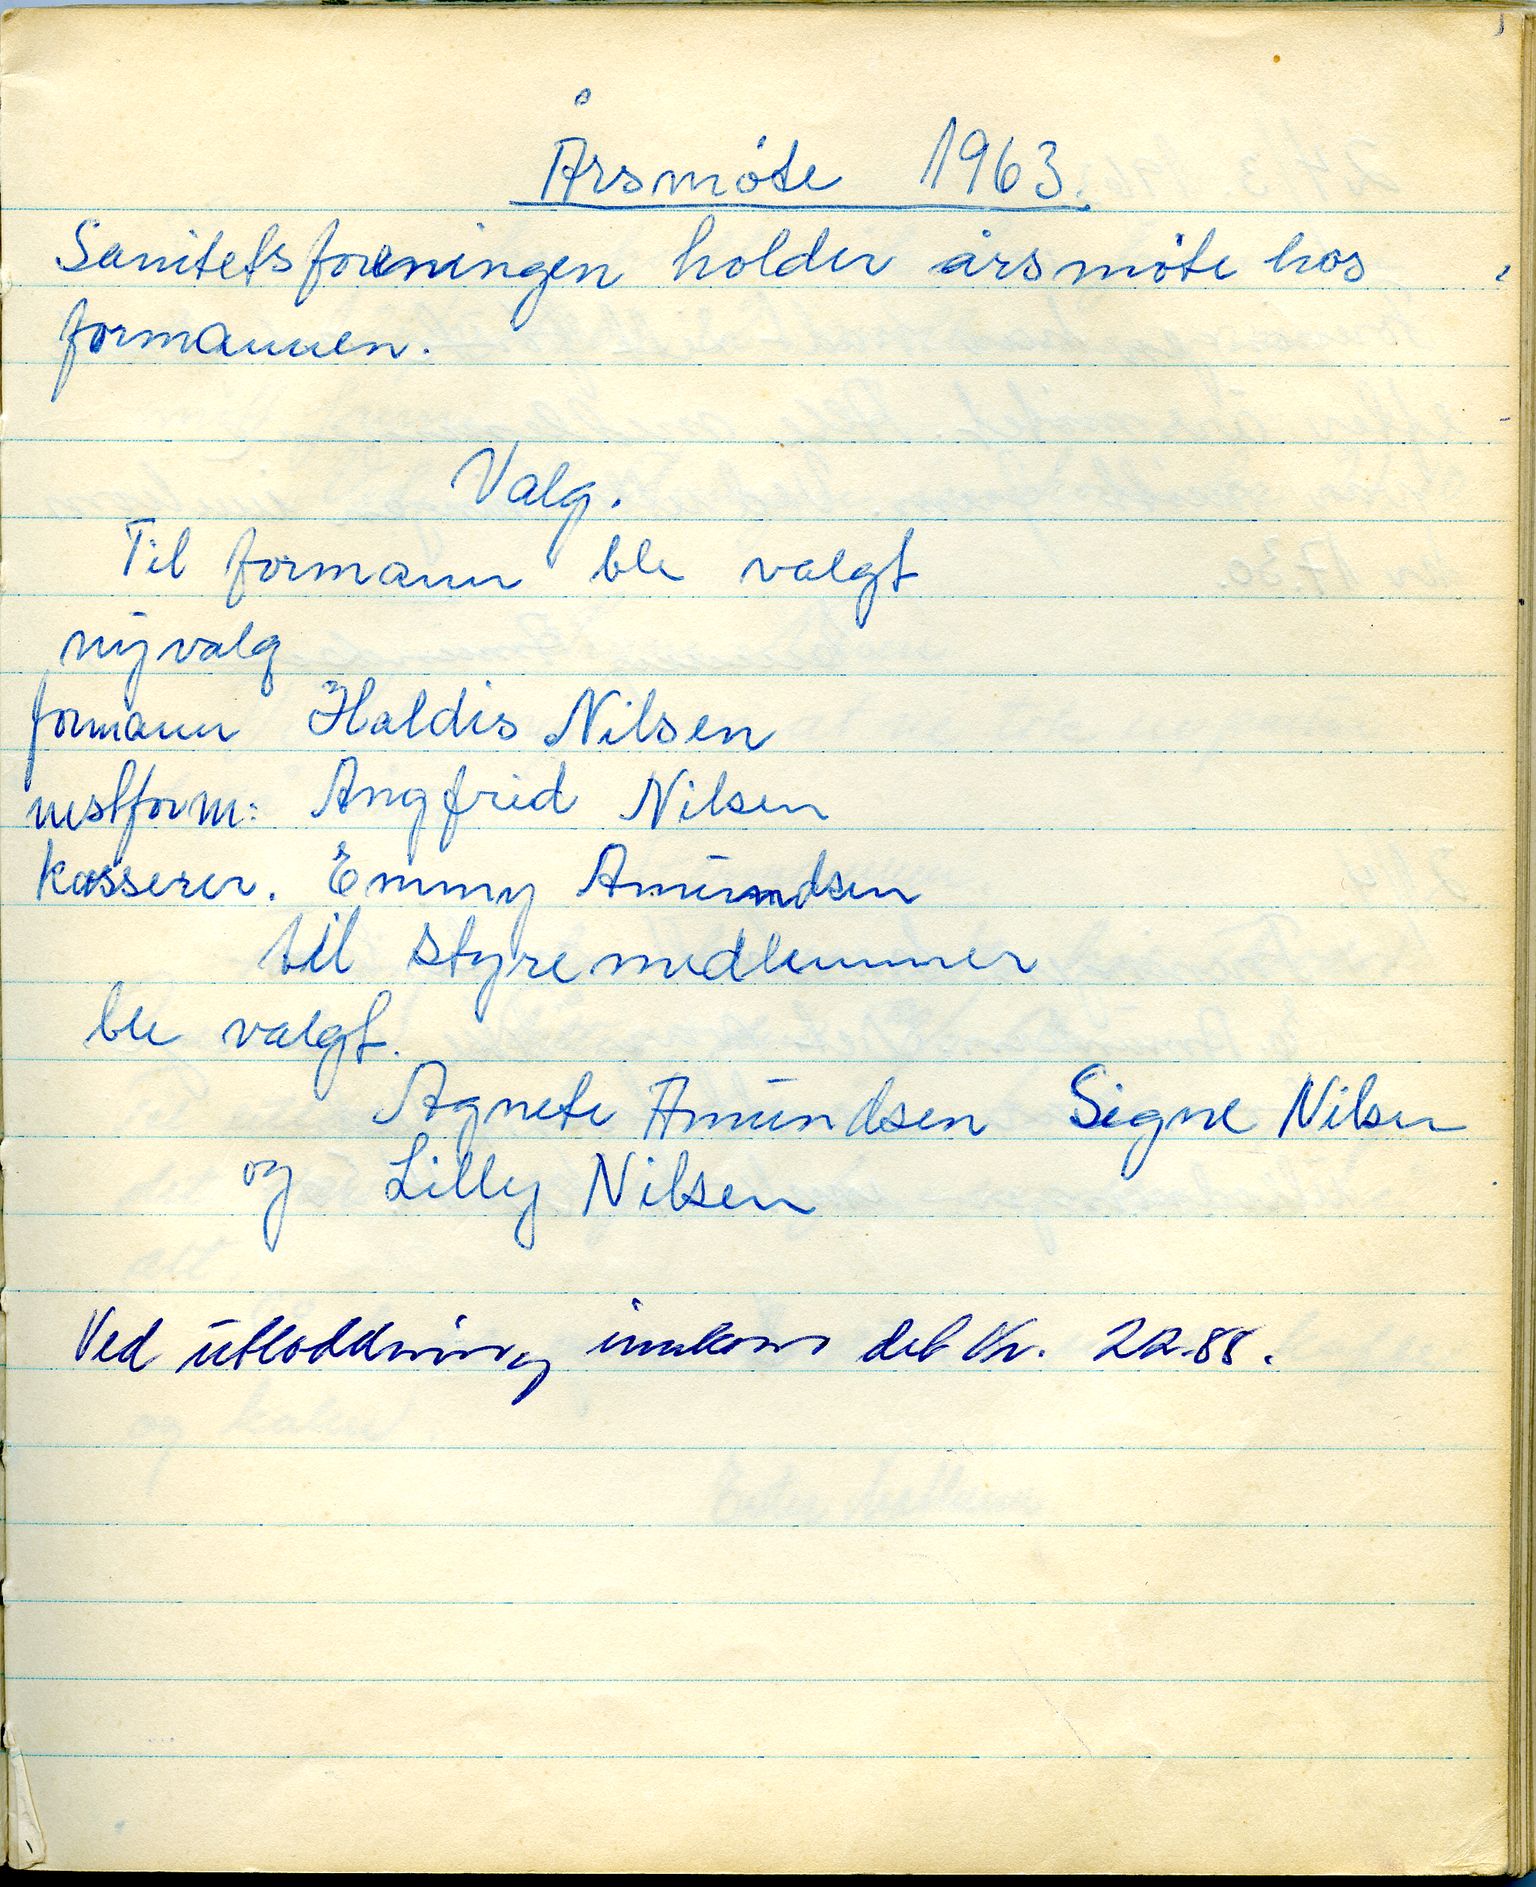 Årsmöte 1963.
Sanitetsforeningen holder årsmöte hos
formannen.
Valg.
Til formann ble valgt
nyvalg
formann Haldis Nilsen
nestform: Angfrid Nilsen
kasserer. Emmy Amundsen
til styremedlemmer
ble valgt.
Agnete Amundsen Signe Nilsen
og Lilly Nilsen
Ved utloddning innkom det Kr. 22.88.